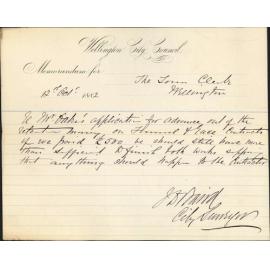 Wellington City Council.
Memorandum for
The Town Clerk
Wellington
12th Oct. 1882
Re Mr Oakes application for advance out of the
money on Hunnel & Contracts
if we paid £500 he should still have more
than sufficient to finish both works
that anything should happen to the Contractor
J D Baird
City Surveyor